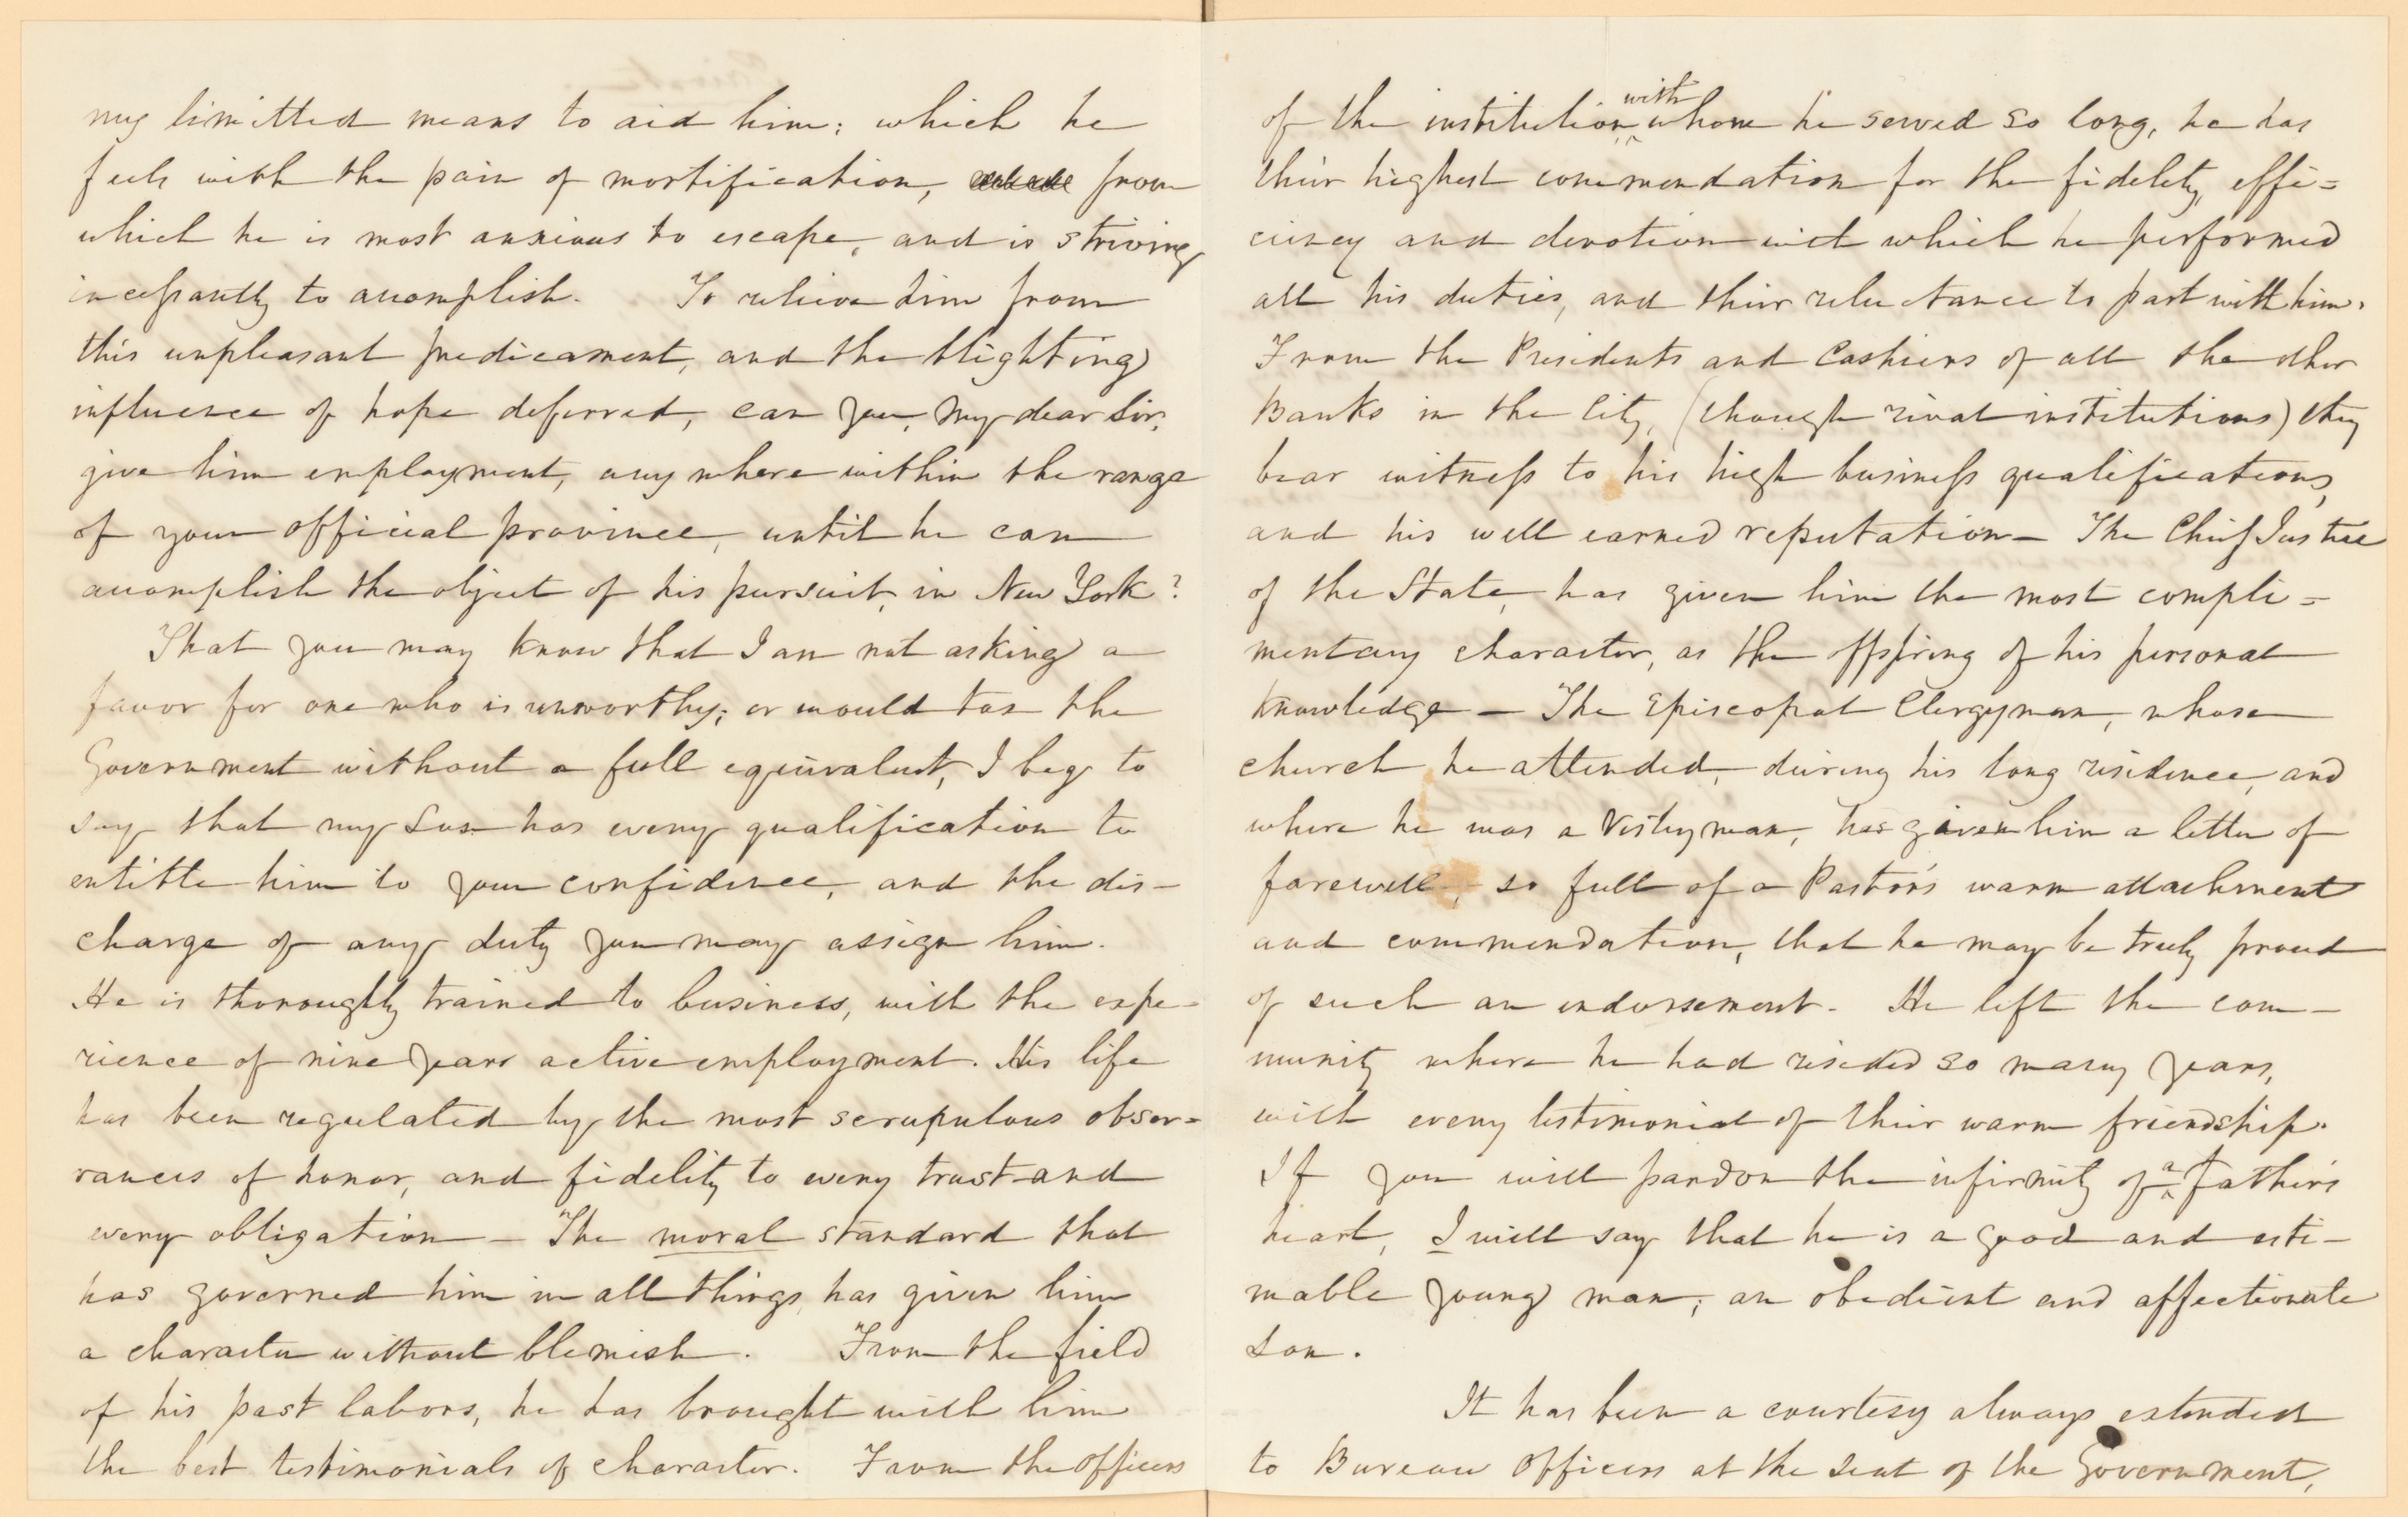 my limitted means to aid him; which he
feels with the pain of mortification, from
which he is most anxious to escape, and is striving
incessantly to accomplish. To relieve him from
this unpleasant predicament, and the blighting
influence of hope deferred, can you, my dear Sir,
give him employment, any where within the range
of your official province, until he can
accomplish the object of his pursuit, in New York?
That you may know that I am not asking a
favor for one who is unworthy; or would tax the
Government without a full equivalent, I beg to
say that my Son has every qualification to
entitle him to your confidence, and the dis-
charge of any duty you may assign him.
He is thoroughly trained to business, with the expe-
rience of nine years active employment. His life
has been regulated by the most scrupulous obser=
vances of honor, and fidelity to every trust and
every obligation — The moral standard that
has governed him in all things, has given him
a character without blemish. From the field
of his past labors, he has brought with him
the best testimonials of character. From the officers
of the institution, with whom he served so long, he has
their highest commendation for the fidelity, effi=
ciency and devotion with which he performed
all his duties, and their reluctance to part with him.
From the Presidents and Cashiers of all the other
Banks in the City, (though rival institutions) they
bear witness to his high business qualifications,
and his well earned reputation — The Chief Justice
of the State, has given him the most compli=
mentary character, as the offspring of his personal
knowledge — The Episcopal Clergyman, whose
church he attended, during his long residence, and
where he was a Vestryman, has given him a letter of
farewell, so full of a Pastor's warm attachment
and commendation, that he may be truly proud
of such an endorsement. He left the com-
munity where he had resided so many years,
with every testimonial of their warm friendship.
If you will pardon the infirmity of a father's
heart, I will say that he is a good and esti-
mable young man; an obedient and affectionate
son.
It has been a courtesy always extended
to Bureau Officers at the seat of the Government,